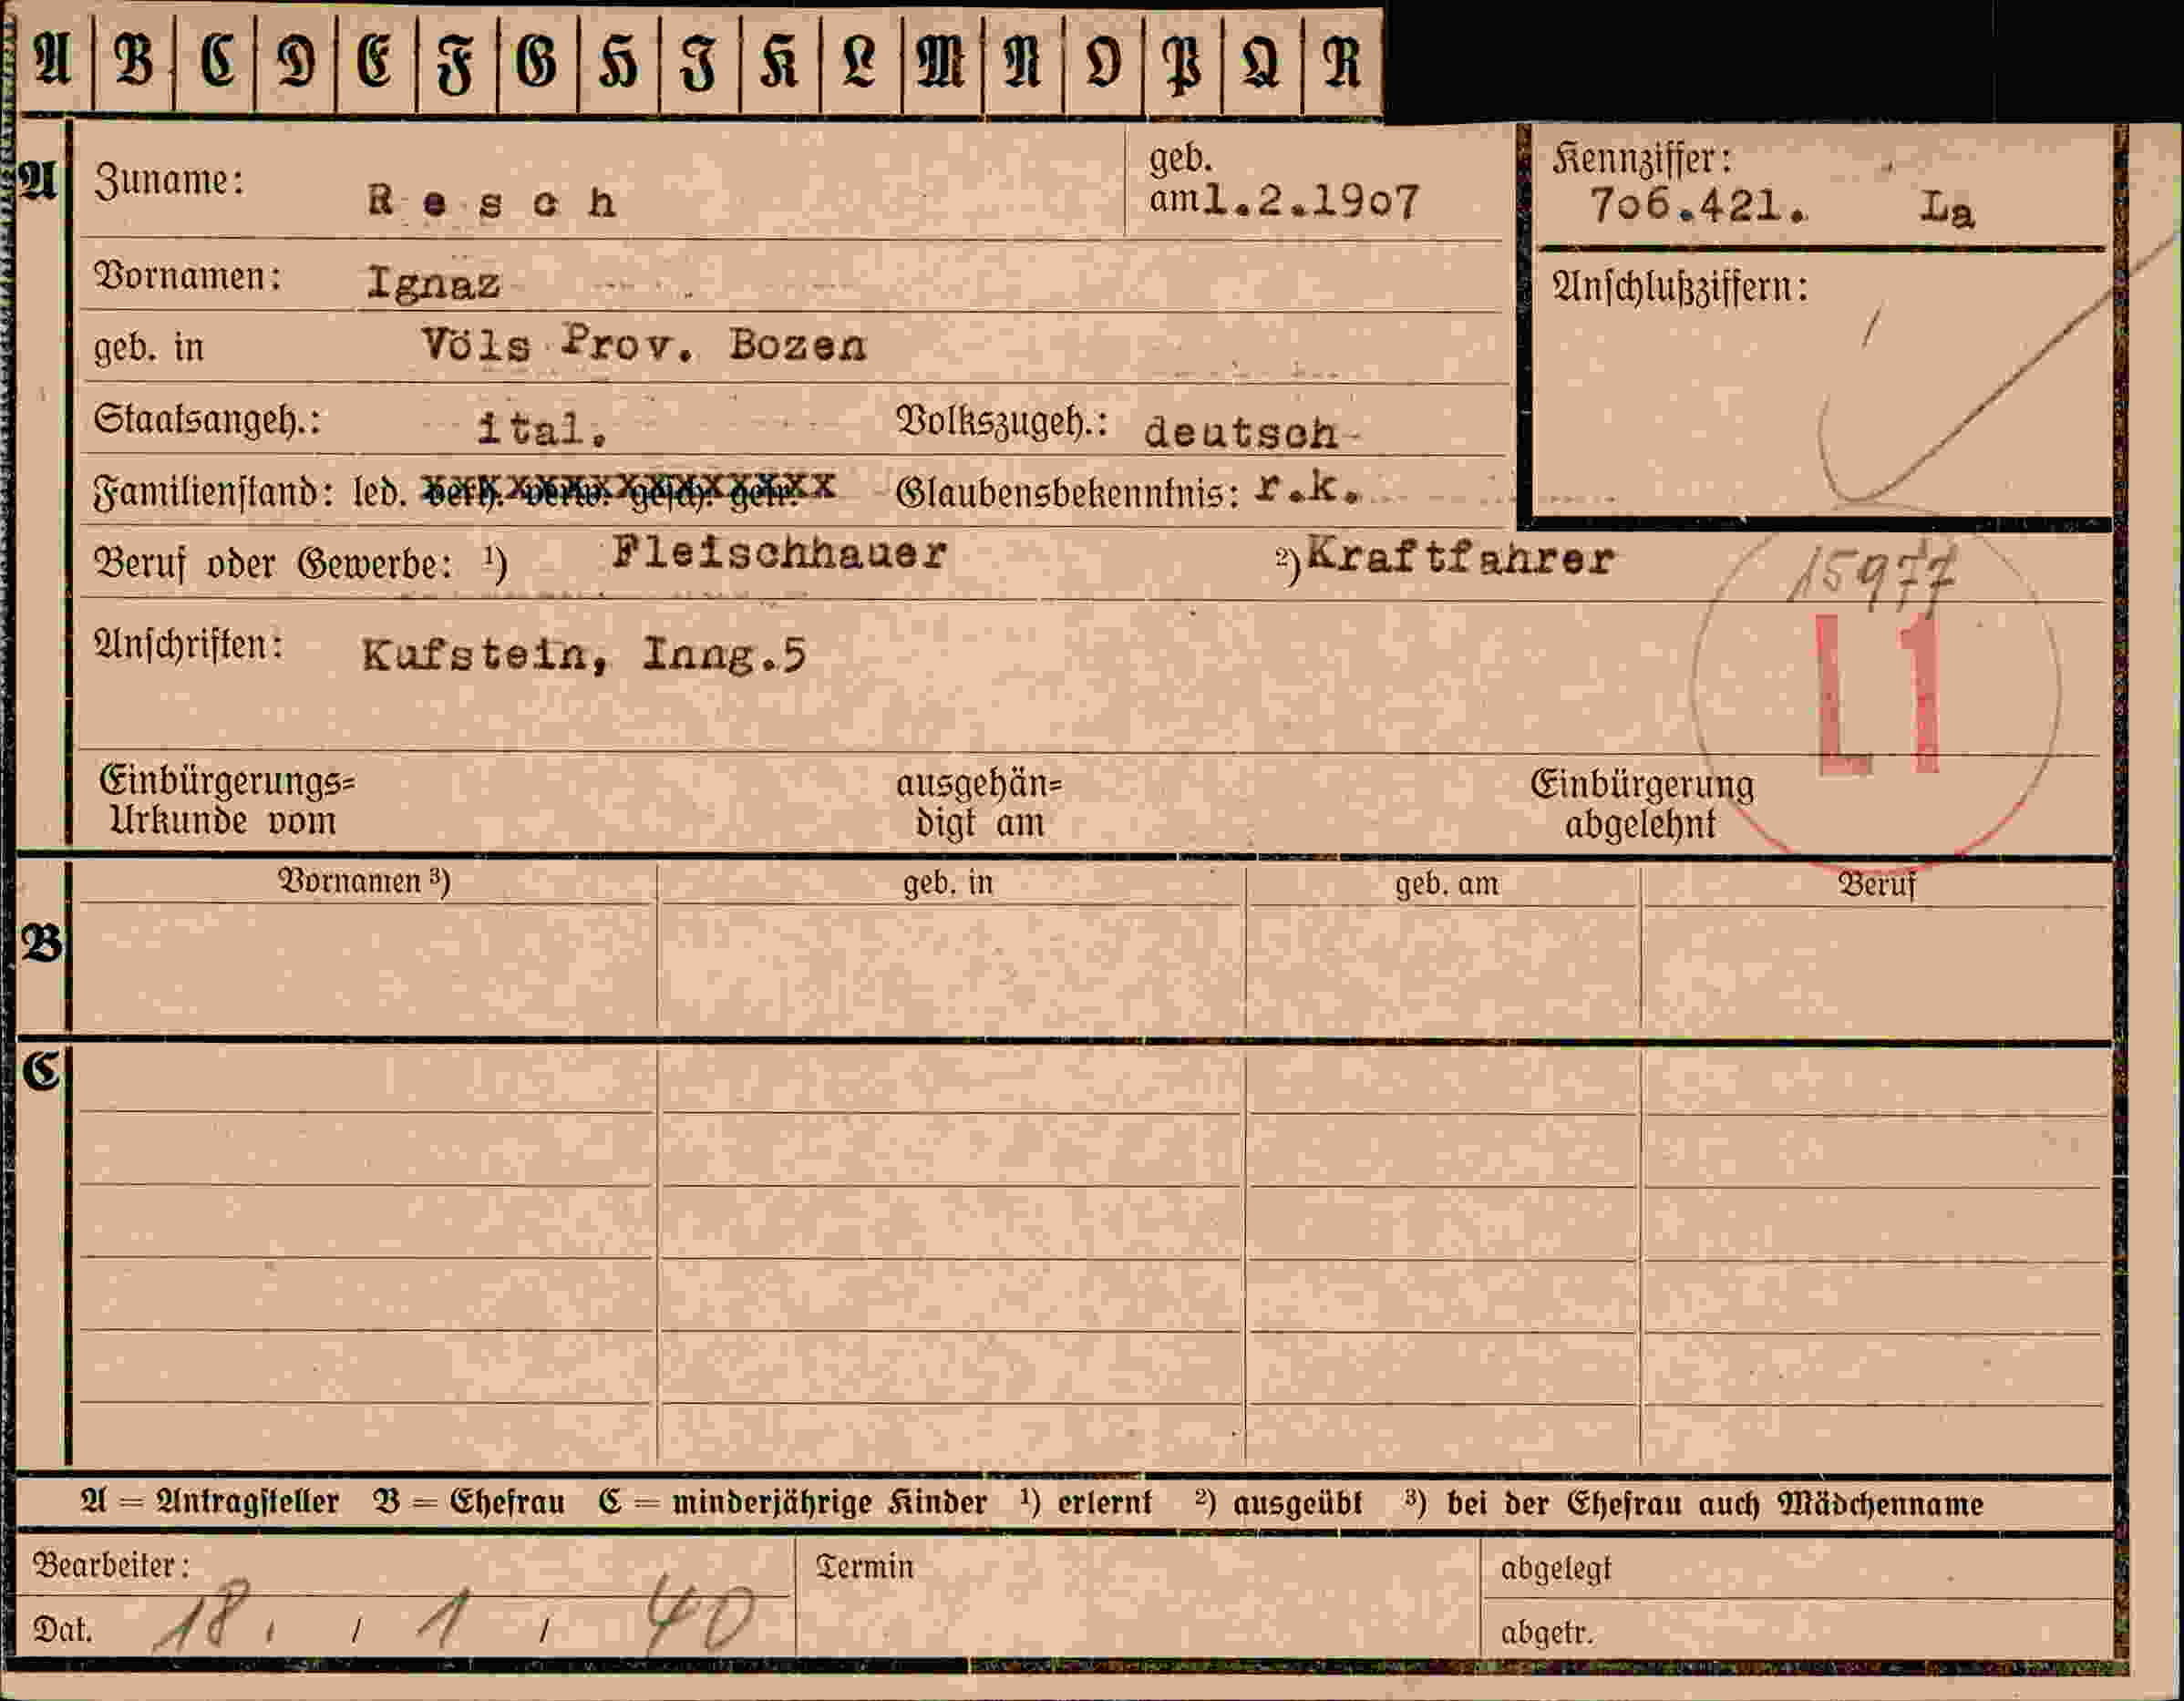 A B C D E F G H I K L M N O P Q R
A Zuname: R e s c h geb. am 1.2.1907 Kennziffer: 706.421. La
Vornamen: Ignaz Anschlußziffern:
geb. in Völs Prov. Bozen
Staatsangeh.: ital. Volkszugeh.: deutsch
Familienstand: led. verh. verw. gesch. getr. Glaubensbekenntnis: r.k.
Beruf oder Gewerbe: 1) Fleischhauer 2) Kraftfahrer 15977
Anschriften: Kufstein, Inng.5 L1
Einbürgerungs= ausgehän= Einbürgerung
Urkunde vom digt am abgelehnt
Vornamen 3) geb. in geb. am Beruf
B
C
A = Antragsteller B = Ehefrau C = minderjährige Kinder 1) erlernt 2) ausgeübt 3) bei der Ehefrau auch Mädchenname
Bearbeiter: Termin abgelegt
Dat. 18. / 1 / 40 abgetr.